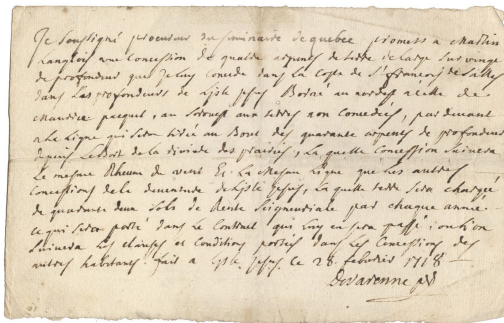 Je soussigné procureur du seminaire de quebec promets a Martin
Langlois une Concession de quatre arpents de terre de large sur vingt
de profondeur que je luy Concede dans la Coste de St françois de Salles
dans Les profondeurs de L'isle Jesus Borné au nordest a celle de
Maurice paquet, au Sorouest aux terres non Concedées, par devant
a la Ligne qui sera tirée au Bout des quarante arpents de profondeur
depuis Le Bort de la Riviere des prairies, La quelle Concession Suivera
Le mesme Rheum de vent Et La mesme Ligne que les autres
Concessions de la devanture de L'isle Jesus, La quelle terre sera chargée
de quarante deux Sols de Rente Seigneuriale par chaque année
ce qui sera porté dans Le Contrat qui luy en sera passé
Suivera Les clauses et Conditions portées dans Les Concessions des
autres habitants. fait a L'isle Jesus ce 28 febvrier 1718